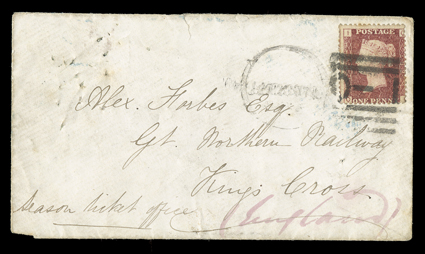 POSTAGE
ONE PENNY
Alex. Forbes Esq.
Gt. Northern Railway
Kings Cross
Season ticket office
(England)